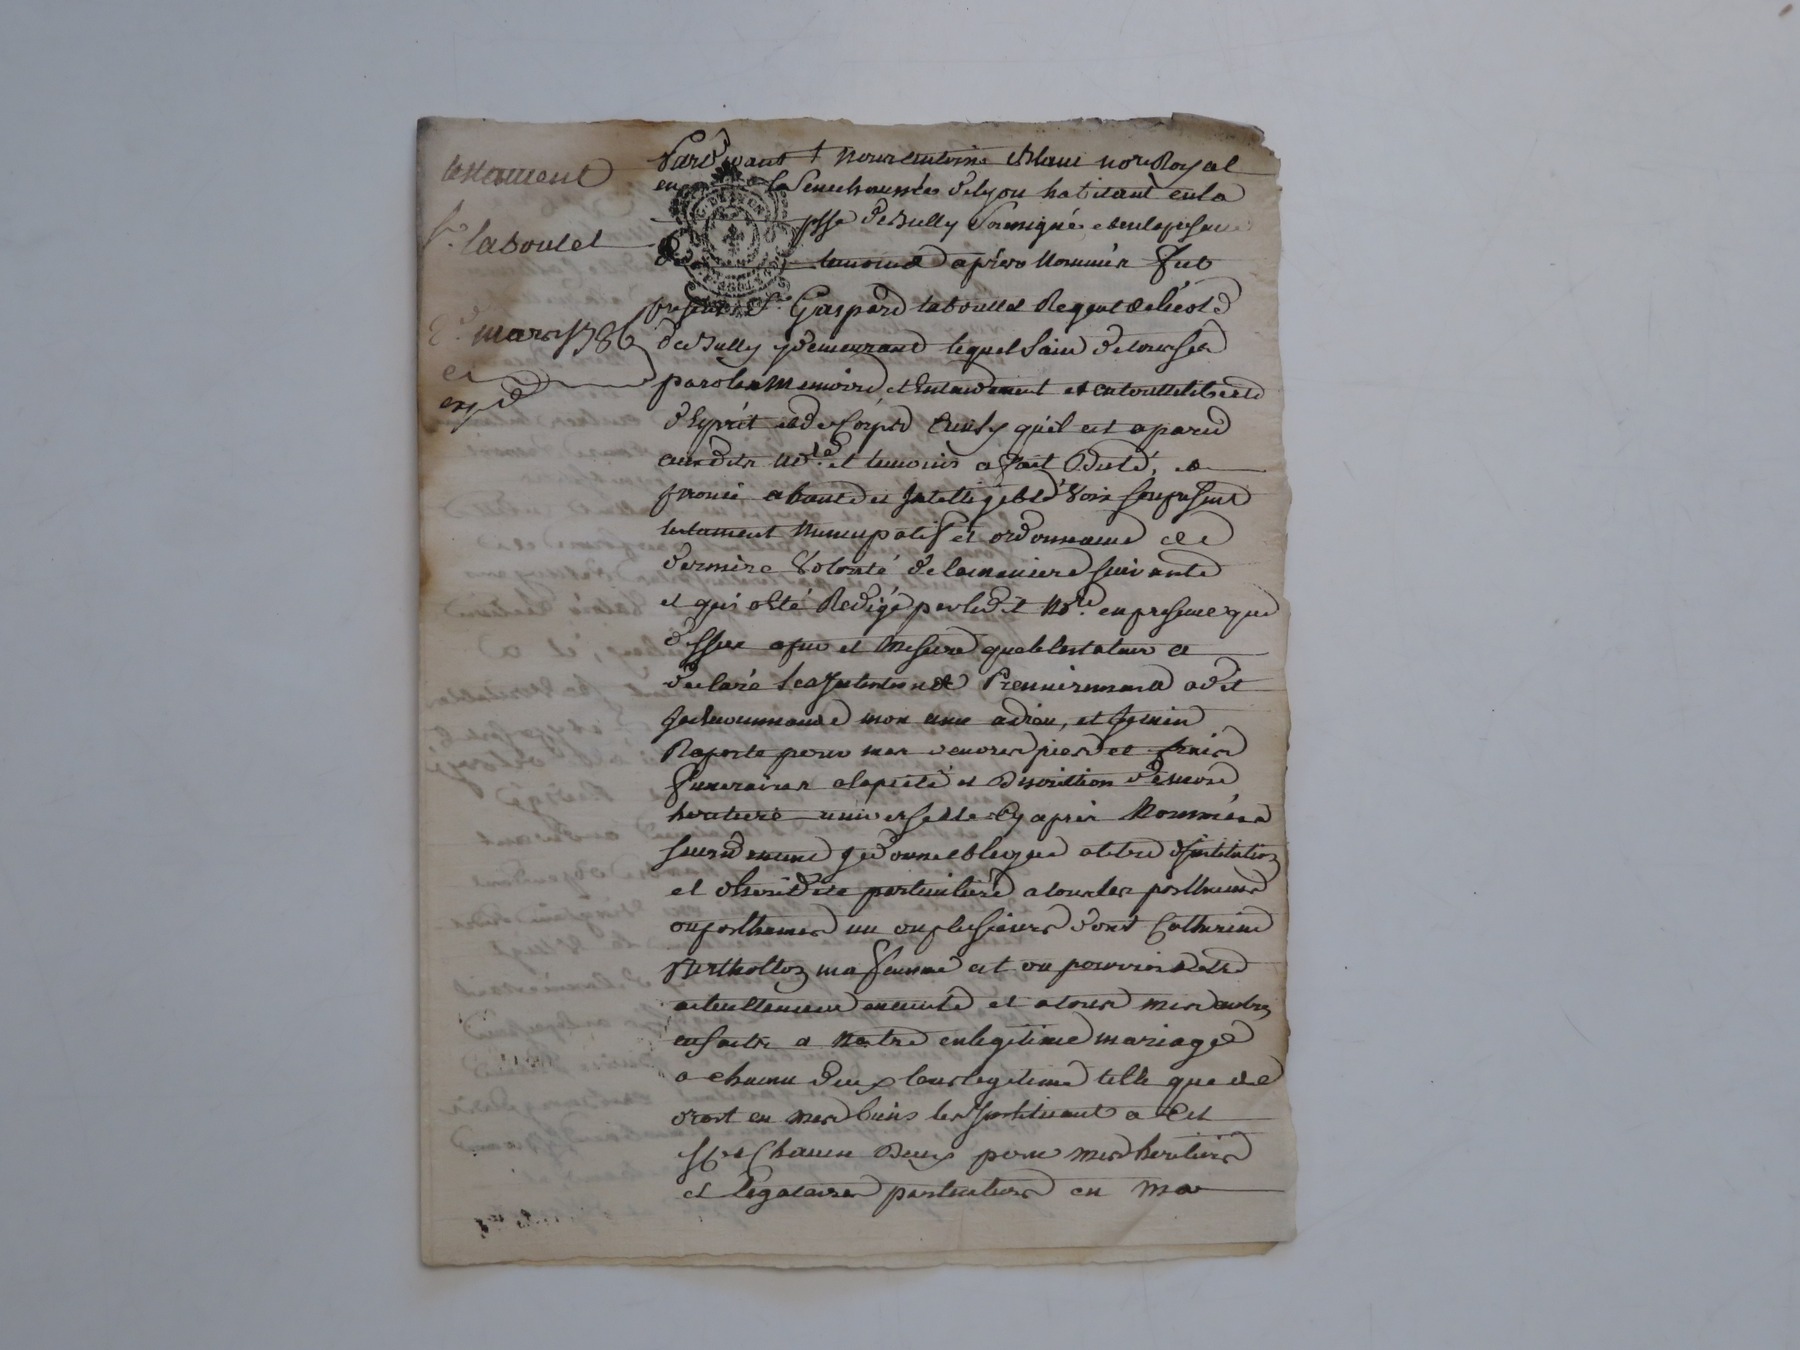 testament
Sr. laboulet
2e. mars 1786
et
exp d
Pardevant Nous Antoine Blanc nore Royal
en la Senechaussée de lyon habitant en la
psse de Bully Soussigné et en la presence
de temoins apres Nommés fut
present Sr. Gaspard laboullet Regent de l'ecole
de Bully y demeurant lequel Sain de tous ses
paroles Memoire et Entendement et en toutte liberté
d'esprit et de Corps Ainsy qu'il est aparu
auxdits nore. et temoins a fait Dicté, et
prononcé a haute et Intelligeble Voix son present
testament Nuncupatif et ordonnance de
derniere Volonté de la maniere suivante
et qui a été Redigé par ledit Nore. en presence que
dessus a fur et Mesure que le testateur a
declaré Ses Intentions Premierement a dit
Je Recommande mon ame a dieu, et Je m'en
Raporte pour mes oeuvres pies et frais
funeraires a la pieté et Discrition de mon
heritiere universelle Cy apres Nommée
secondement je donne et legue a titre d'Institution
et d'heredité particuliere a tous les posthumes
ou posthumes un ou plusieurs dont Catherine
Bertholon ma femme est ou pourroit etre
actuellement enceinte et a tous mes autres
enfants a Naitre en legitime mariage
a chacun d'eux leur legitime telle que de
droit en mes biens les Instituant a Cet
Chacun Deux pour mes heritiers
et legataires particuliers en ma